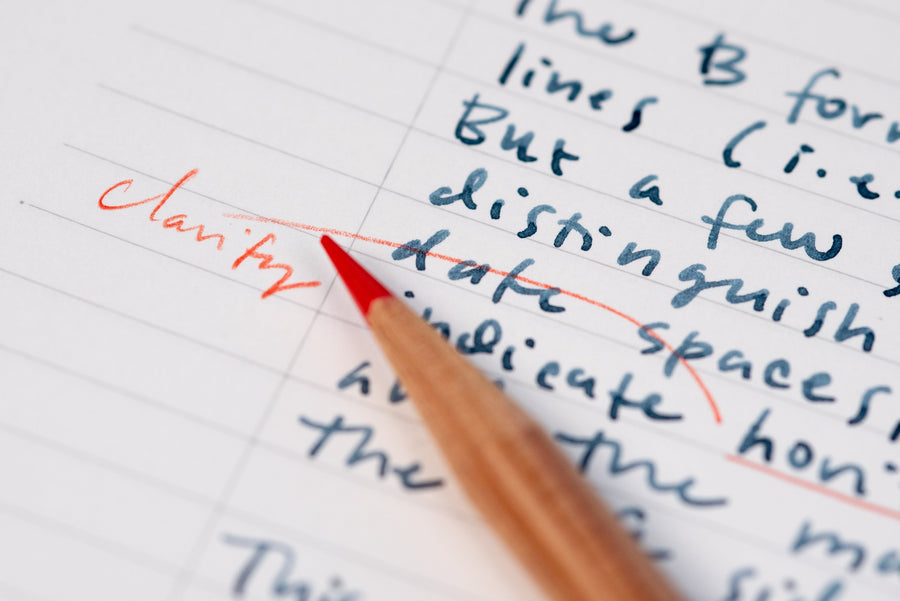 The B for
lines (i.e.
But a few
distinguish
Clarify
date spaces
indicate hori
the the ma
This